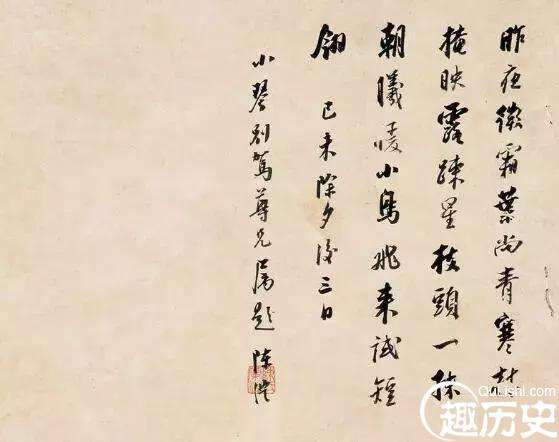 昨夜微霜葉尚青寒林
掩映露疎星枝頭一抹
朝曦暖小鳥飛来試短
翎 己未除夕後三日
小琴别駕尊兄属題 陳
Qulishi.com
趣历史